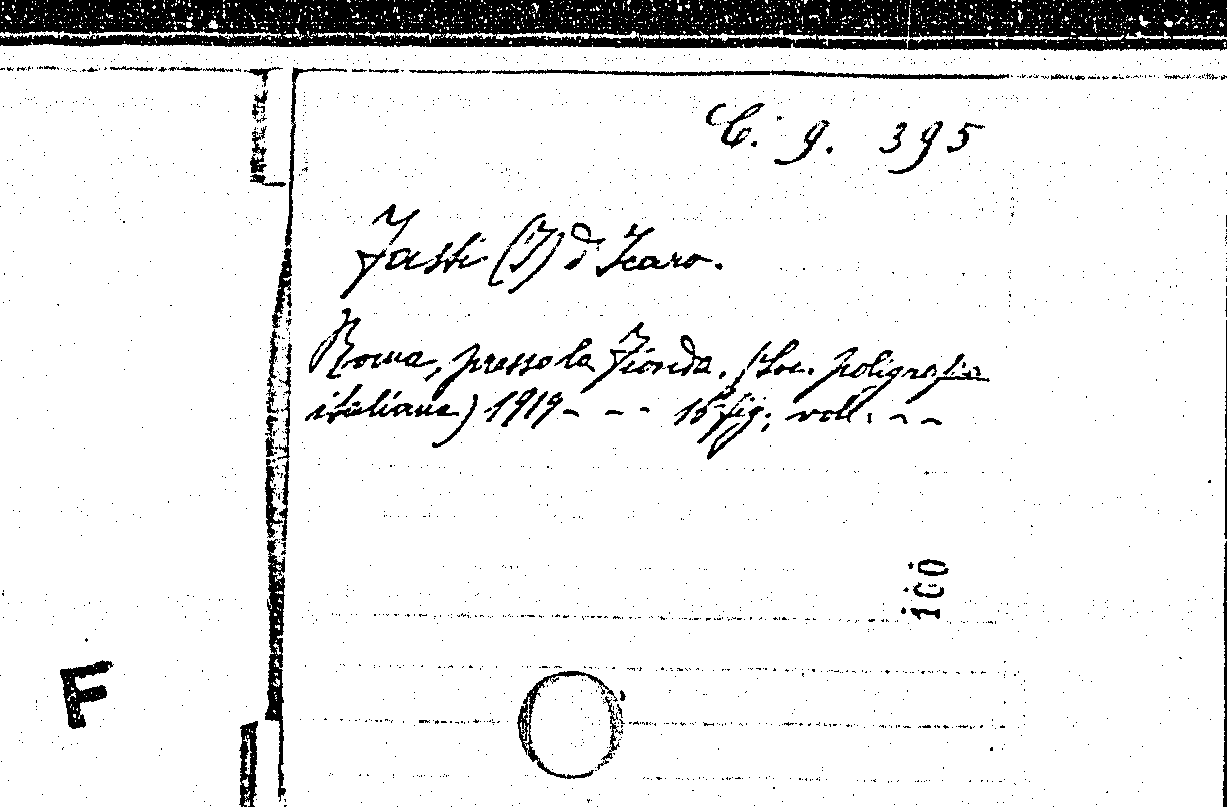 C. 9. 395
Fasti (I) d'Icaro.
Roma, presso la Fionda. (Soc. poligrafia
italiana) 1919 - - - 16° fig; voll. - -
100
F